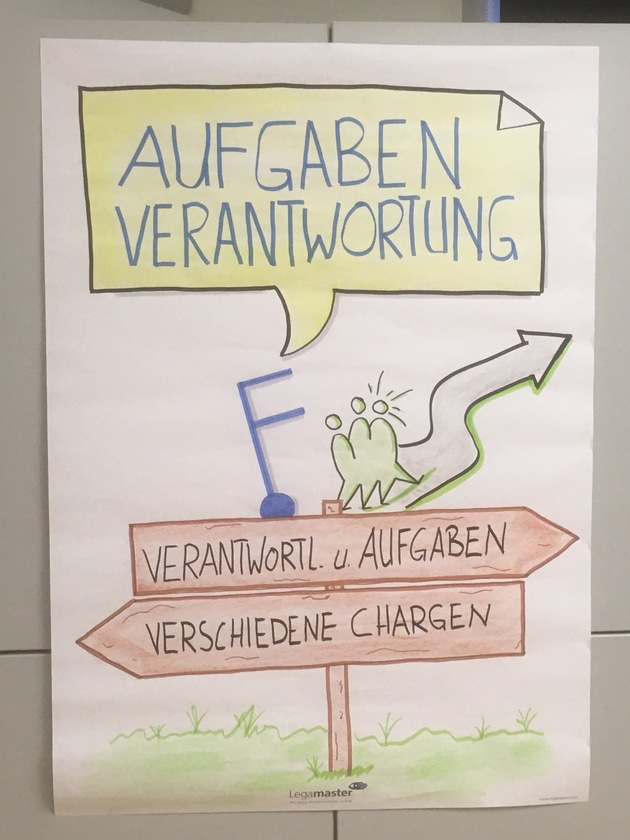 AUFGABEN
VERANTWORTUNG
F
VERANTWORTL. u. AUFGABEN
VERSCHIEDENE CHARGEN
Legamaster